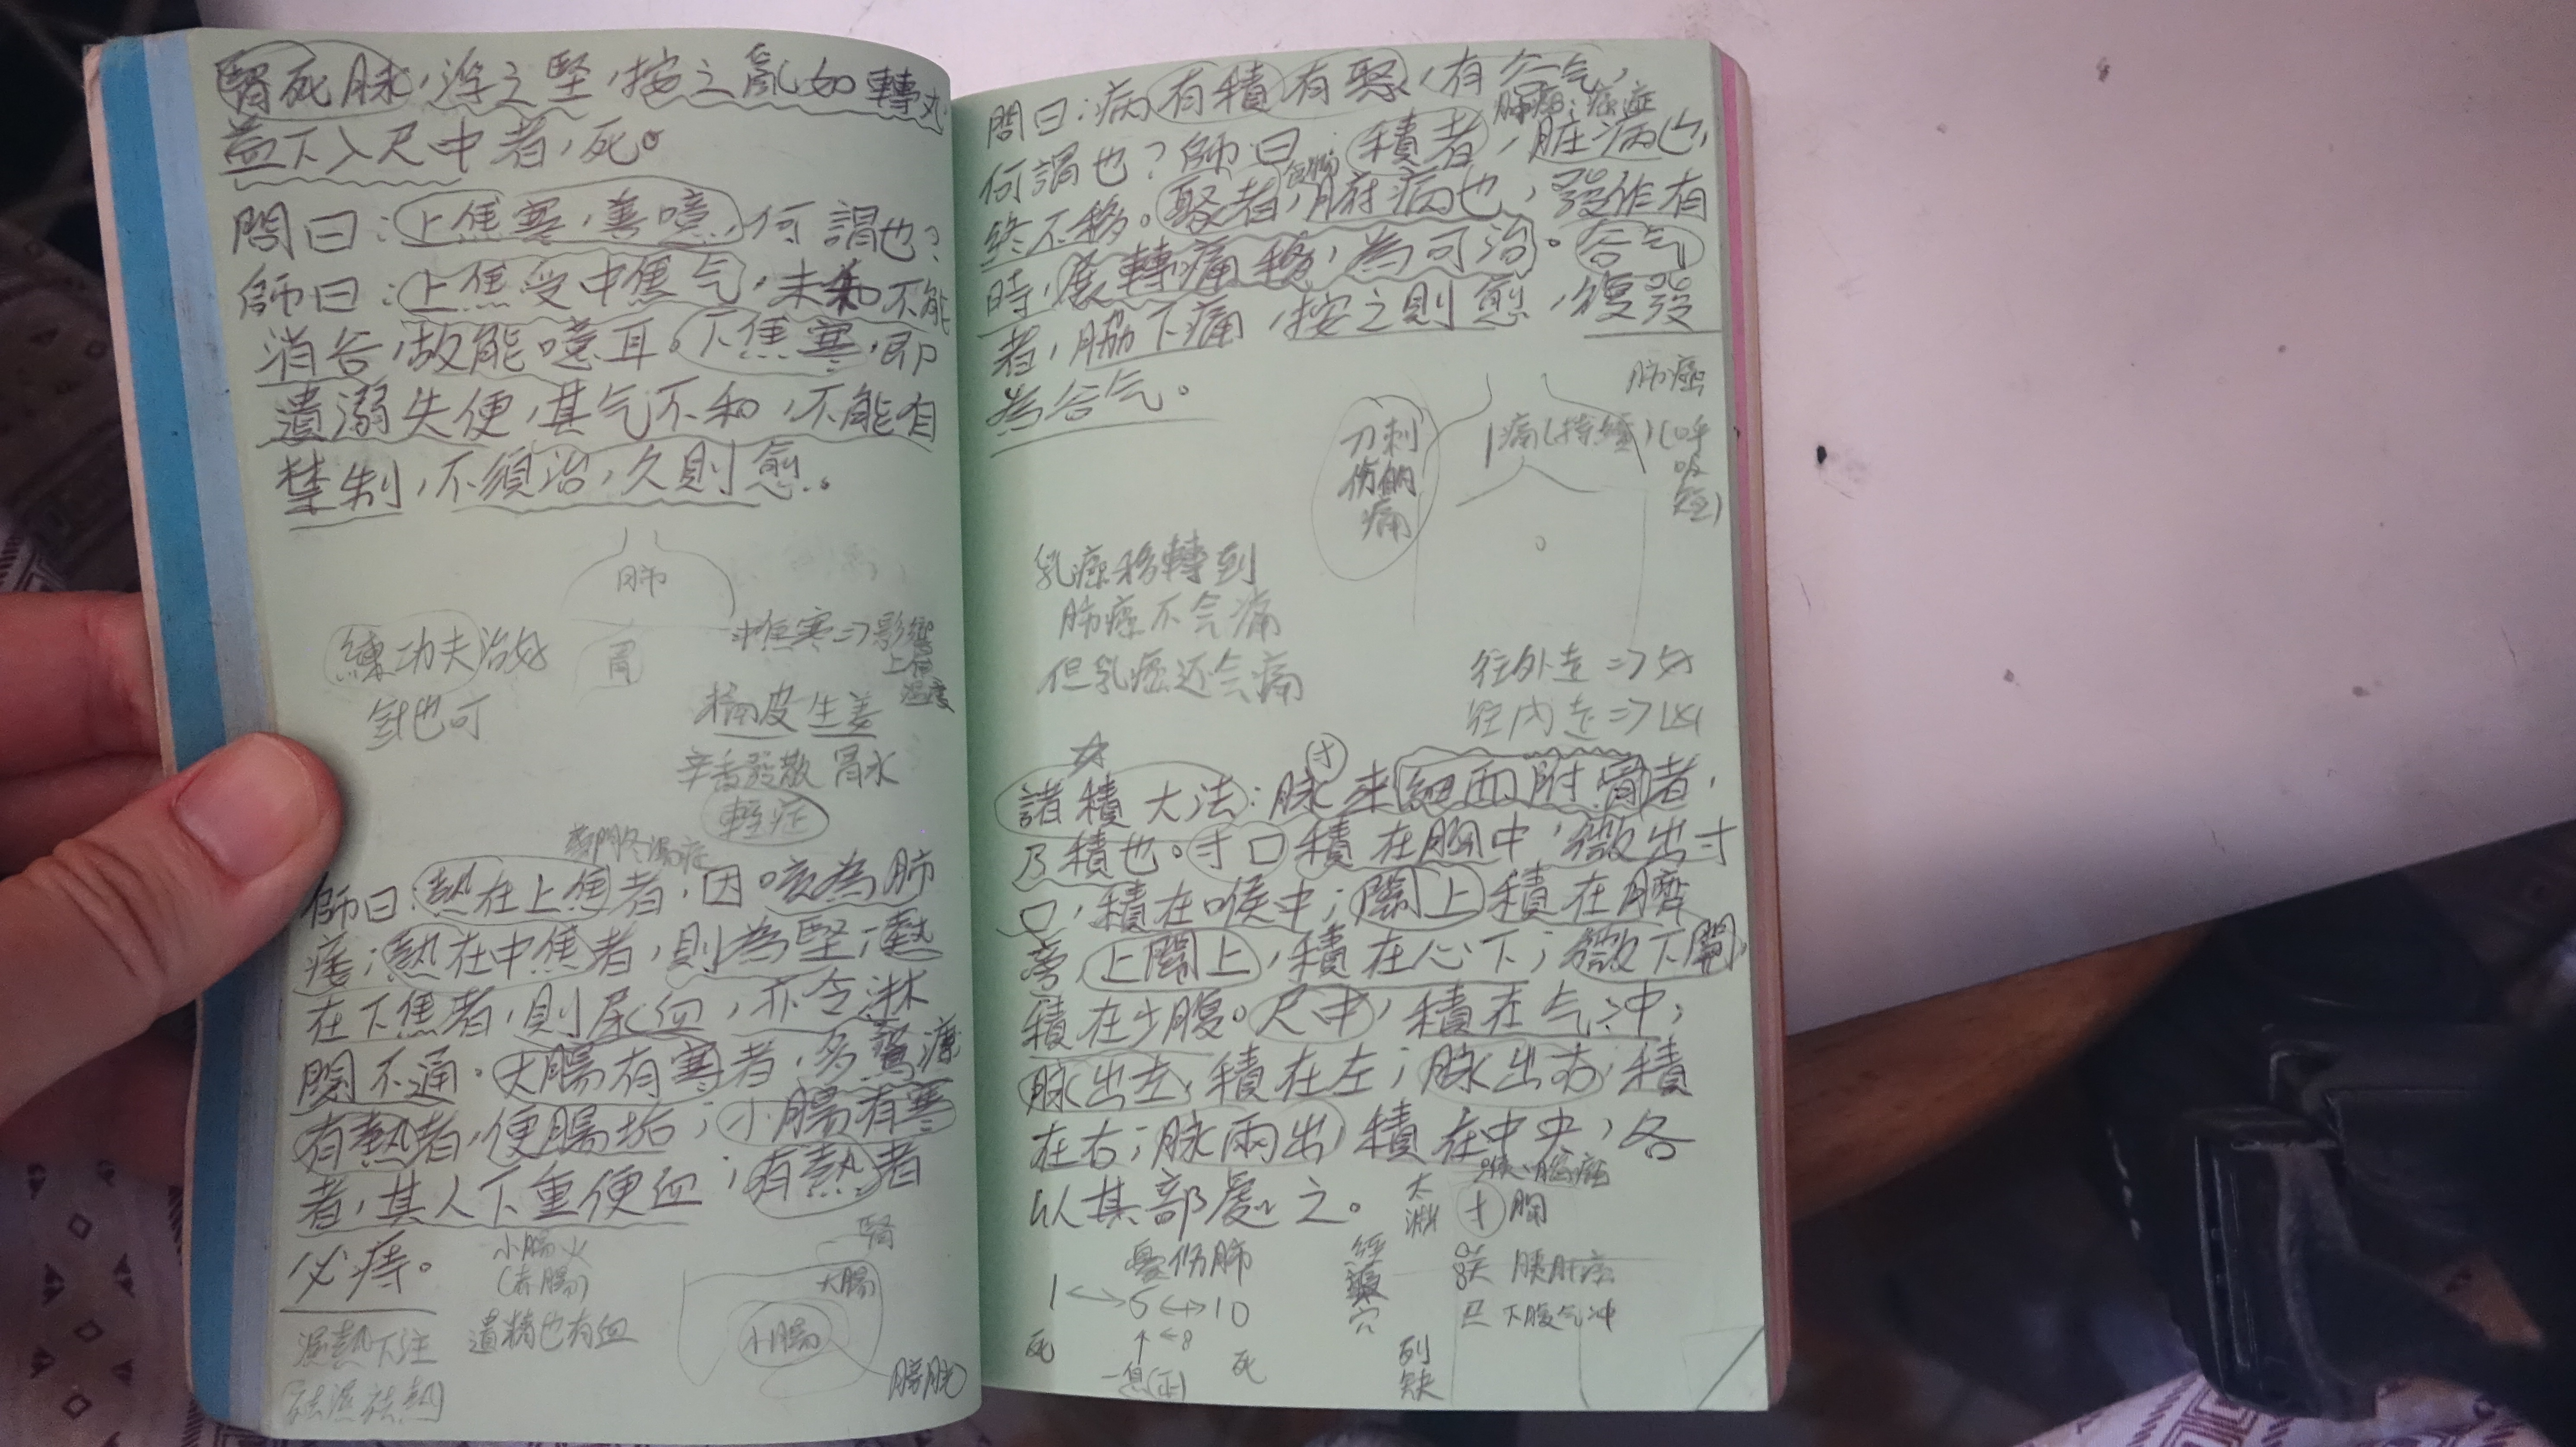 腎死脉，浮之堅，按之亂如轉丸，
益下入尺中者，死。
問曰：上焦寒，善噫，何謂也？
師曰：上焦受中焦气，未和，不能
消谷，故能噫耳。下焦寒，即
遺溺失便，其气不和，不能自
禁制，不須治，久則愈。
肺
練功夫治好
針也可
胃
中焦寒=>影響
上焦
溫度
橘皮生姜
辛香發散 胃水
輕症
師曰：熱在上焦者，因咳為肺
痿；熱在中焦者，則為堅；熱
在下焦者，則尿血，亦令淋
閟不通。大腸有寒者，多鶩溏
有熱者，便腸垢；小腸有寒
者，其人下重便血；有熱者
必痔。
小腸火
遺精也有血
濕熱下注
祛濕祛熱
腎
大腸
小腸
膀胱
問曰：病有積有聚，有谷气，
何謂也？師曰：積者，脏病也，
終不移。聚者，腑病也，發作有
時，展轉痛移，為可治。谷气
者，脇下痛，按之則愈，復發
為谷气。
肺癌
刀刺
伤的
痛
痛(持續)(呼
吸
短)
乳癌移轉到
肺癌不会痛
但乳癌还会痛
往外走=>好
往内走=>凶
諸積大法：脉来細而附骨者，
乃積也。寸口積在胸中，微出寸
口，積在喉中；關上積在臍
旁，上關上，積在心下；微下關，
積在少腹。尺中，積在气冲；
脉出左，積在左；脉出右，積
在右；脉兩出，積在中央，各
以其部處之。
憂伤肺
1 <-> 5 <-> 10
死
一息(正)
死
太
淵
經
渠
穴
列
缺
喉、腦癌
寸 胸
关 胰肝癌
尺 下腹气冲